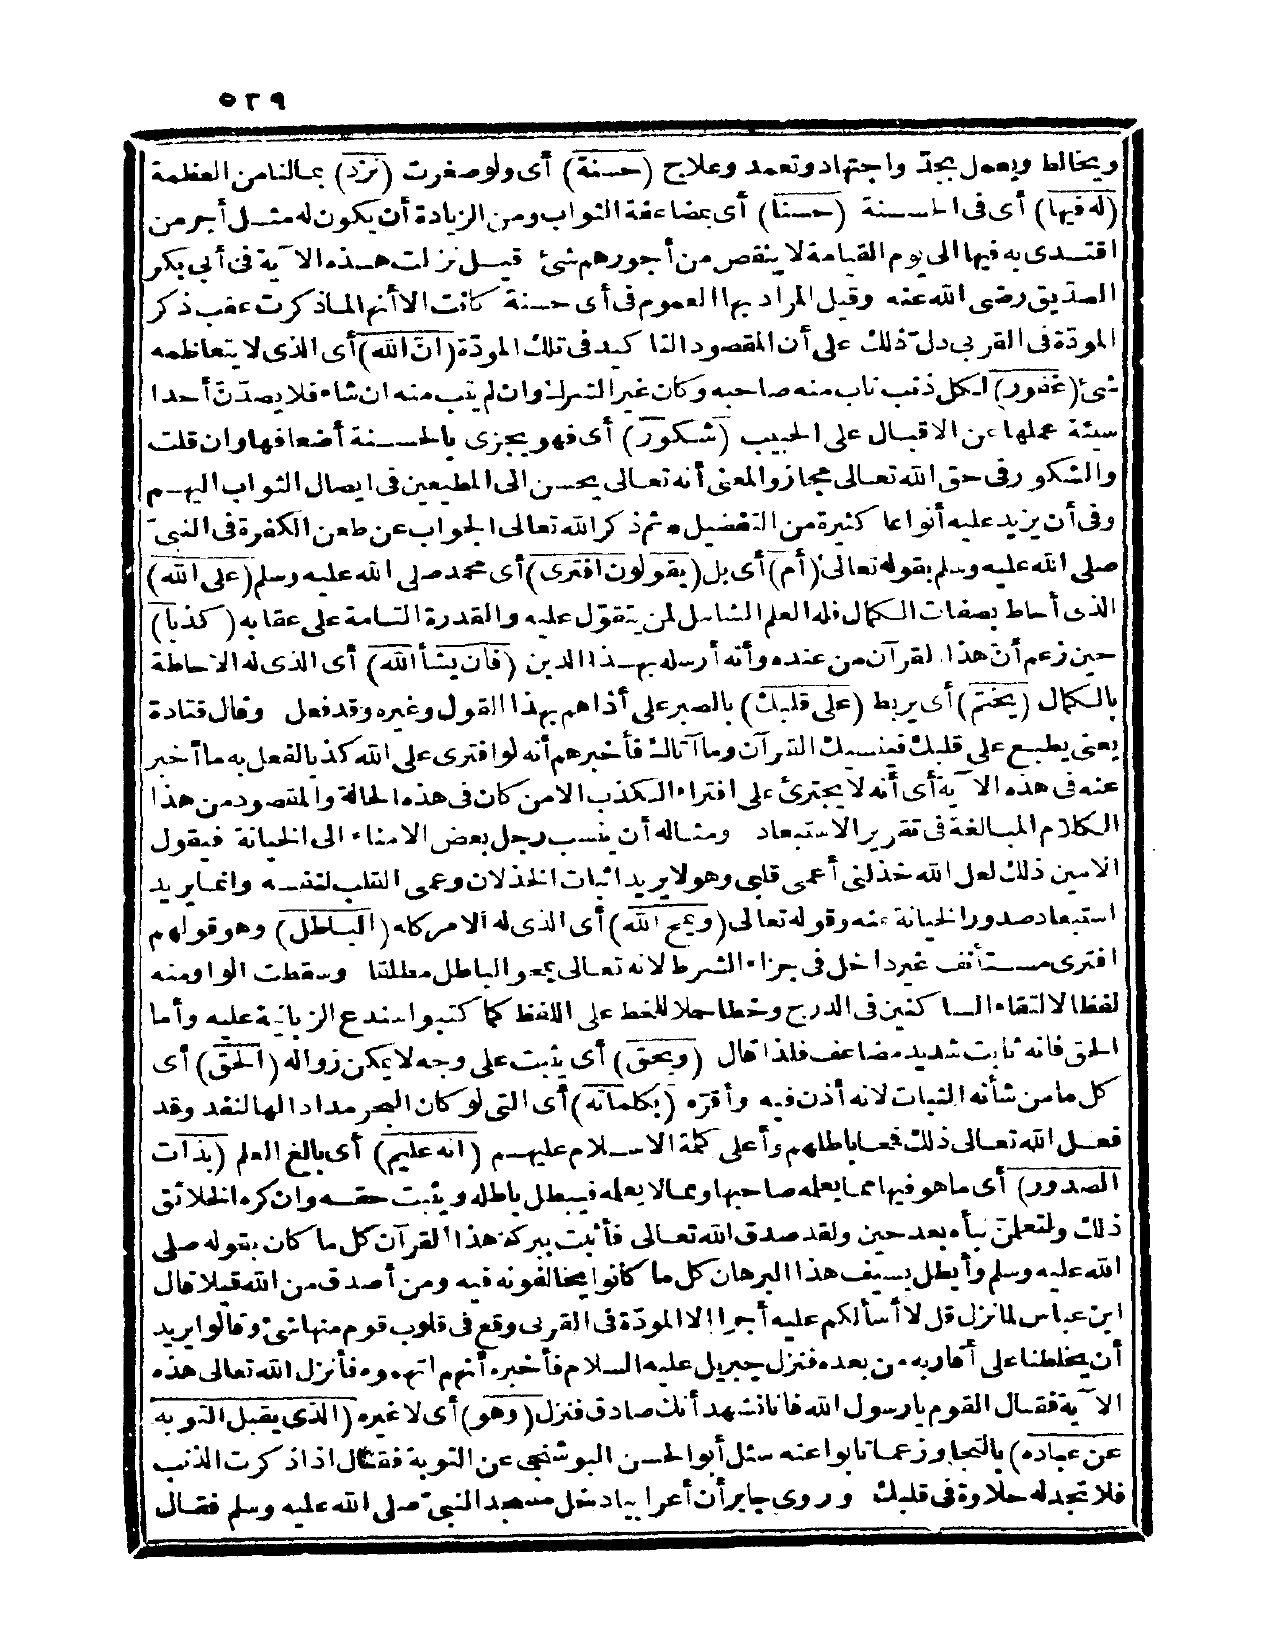 ٥٣٩
ويخالط ويعمل بجدّ واجتهاد وتعمد وعلاج (حسنة) أى ولو صغرت (نزد) بمالنا من العظمة
(له فيها) أى فى الحسنة (حسنا) أى بمضاعفة الثواب ومن الزيادة أن يكون له مثل أجر من
اقتدى به فيها الى يوم القيامة لا ينقص من أجورهم شئ قيل نزلت هذه الآية فى أبى بكر
الصدّيق رضى الله عنه وقيل المراد بها العموم فى أى حسنة كانت الا أنها لما ذكرت عقب ذكر
المودّة فى القربى دل ذلك على أن المقصود التأكيد فى تلك المودّة (انّ الله) أى الذى لا يتعاظمه
شئ (غفور) لكل ذنب تاب منه صاحبه وكان غير الشرك وان لم يتب منه ان شاء فلا يصدّنّ أحدا
سيئة عملها عن الاقبال على الحبيب (شكور) أى فهو يجزى بالحسنة أضعافها وان قلت
والشكور فى حق الله تعالى مجاز والمعنى أنه تعالى يحسن الى المطيعين فى ايصال الثواب اليهم
وفى أن يزيد عليه أنواعا كثيرة من التفضيل * ثم ذكر الله تعالى الجواب عن طعن الكفرة فى النبىّ
صلى الله عليه وسلم بقوله تعالى (أم) أى بل (يقولون افترى) أى محمد صلى الله عليه وسلم (على الله)
الذى أحاط بصفات الكمال فله العلم الشامل لمن يتقول عليه والقدرة التامة على عقابه (كذبا)
حين زعم أنّ هذا القرآن من عنده وأنه أرسله بهذا الدين (فان يشأ الله) أى الذى له الاحاطة
بالكمال (يختم) أى يربط (على قلبك) بالصبر على أذاهم بهذا القول وغيره وقد فعل وقال قتادة
يعنى يطبع على قلبك فينسيك القرآن وما آتاك فأخبرهم أنه لو افترى على الله كذبا لفعل به ما أخبر
عنه فى هذه الآية أى أنه لا يجترئ على افتراء الكذب الا من كان فى هذه الحالة والمقصود من هذا
الكلام المبالغة فى تقرير الاستبعاد ومثاله أن ينسب رجل بعض الامناء الى الخيانة فيقول
الامين ذلك لعل الله خذلنى أعمى قلبى وهو لا يريد اثبات الخذلان وعمى القلب لنفسه وانما يريد
استبعاد صدور الخيانة عنه وقوله تعالى (ويمح الله) أى الذى له الامر كله (الباطل) وهو قولهم
افترى مستأنف غير داخل فى جزاء الشرط لانه تعالى يمحو الباطل مطلقا وسقطت الواو منه
لفظا لالتقاء الساكنين فى الدرج وخطا حملا للخط على اللفظ كما كتبوا سندع الزبانية عليه وأما
الحق فانه ثابت شديد مضاعف فلذا قال (ويحق) أى يثبت على وجه لا يمكن زواله (الحق) أى
كل ما من شأنه الثبات لانه أذن فيه وأقرّه (بكلماته) أى التى لو كان البحر مدادا لها لنفد وقد
فعل الله تعالى ذلك فمحا باطلهم وأعلى كلمة الاسلام عليهم (انه عليم) أى بالغ العلم (بذات
الصدور) أى ما هو فيها مما يعلمه صاحبها ومما لا يعلمه فيبطل باطله ويثبت حقه وان كره الخلائق
ذلك ولتعلمنّ نبأه بعد حين ولقد صدق الله تعالى فأثبت ببركة هذا القرآن كل ما كان يقوله صلى
الله عليه وسلم وأبطل بسيف هذا البرهان كل ما كانوا يخالفونه فيه ومن أصدق من الله قيلا قال
ابن عباس لما نزل قل لا أسألكم عليه أجرا الا المودّة فى القربى وقع فى قلوب قوم منها شئ وقالوا يريد
أن يخلطنا على أقاربه من بعده فنزل جبريل عليه السلام فأخبره أنهم اتهموه فأنزل الله تعالى هذه
الآية فقال القوم يا رسول الله فانا نشهد أنك صادق فنزل (وهو) أى لا غيره (الذى يقبل التوبة
عن عباده) بالتجاوز عما تابوا عنه سئل أبو الحسن البوشنجى عن التوبة فقال اذا ذكرت الذنب
فلا تجد له حلاوة فى قلبك وروى جابر أن أعرابيا دخل مسجد النبىّ صلى الله عليه وسلم فقال